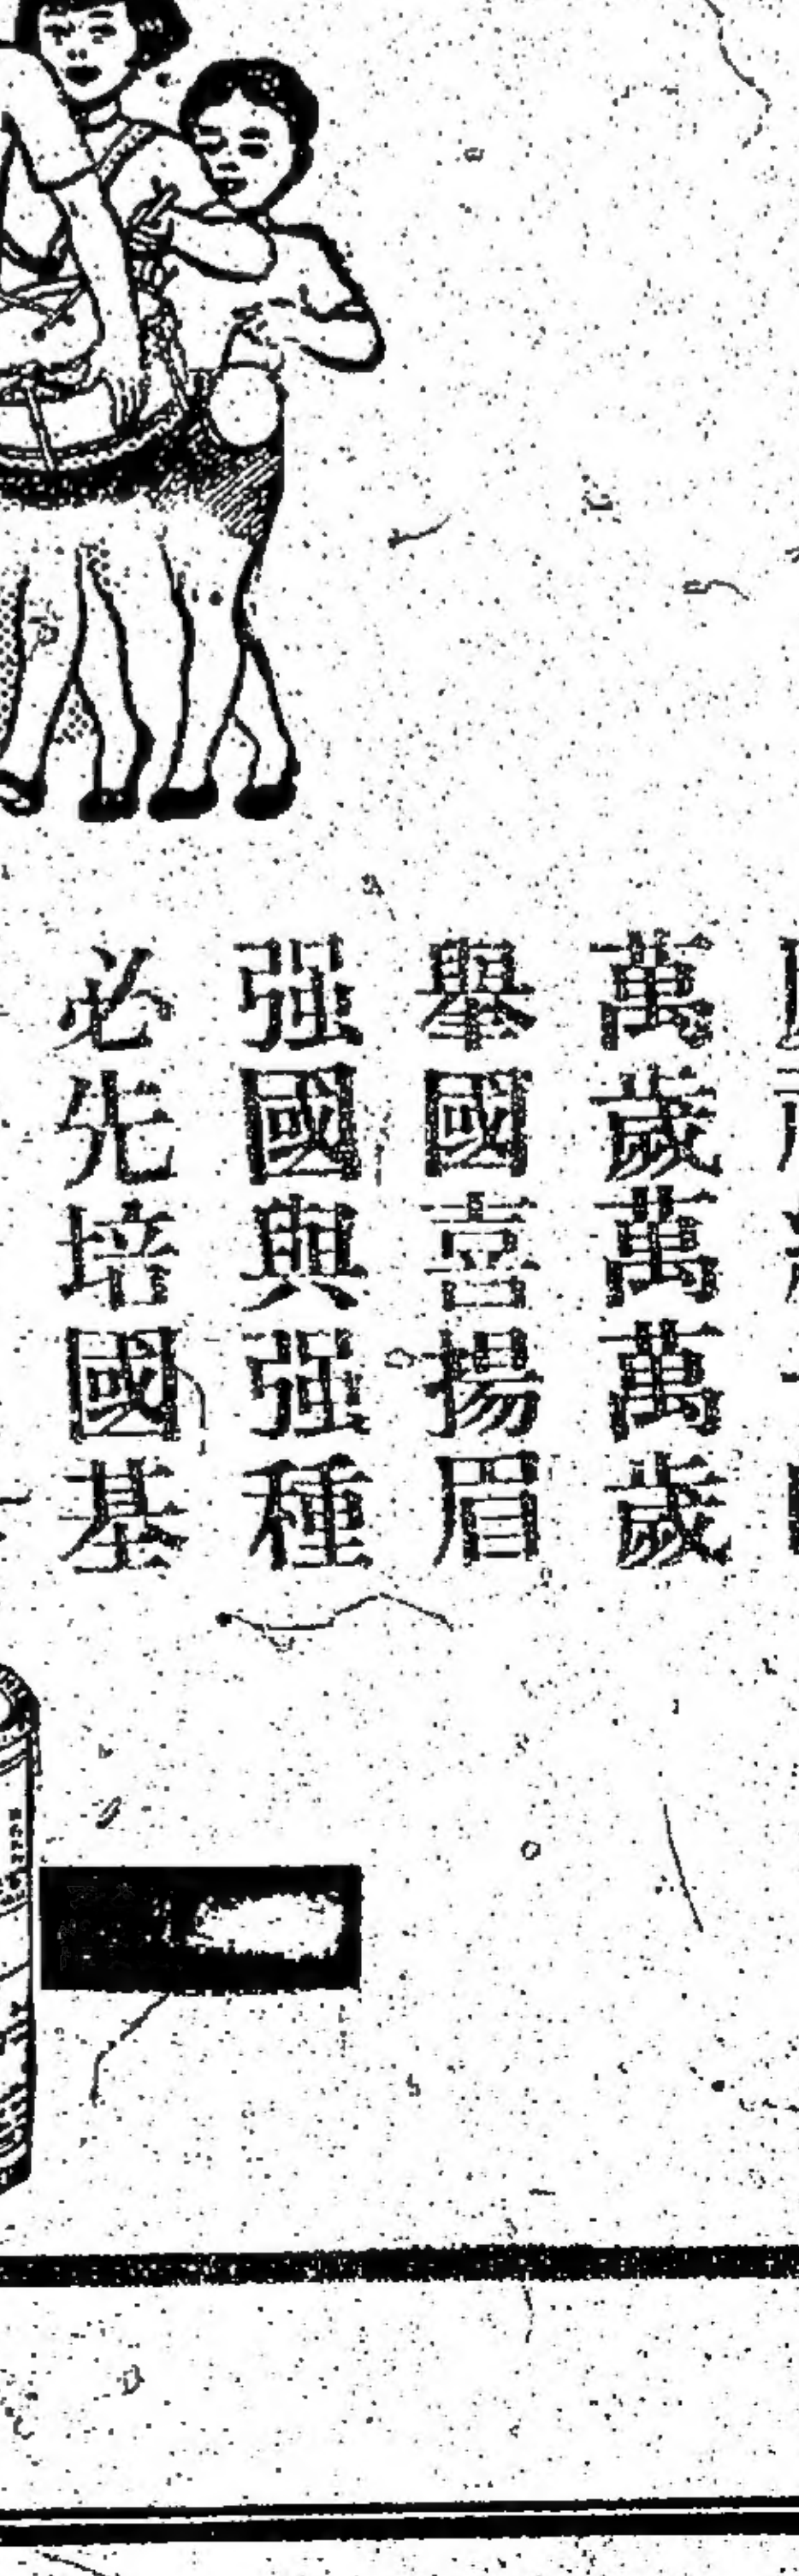 萬歲萬萬歲
舉國喜揚眉
强國與强種
必先培國基